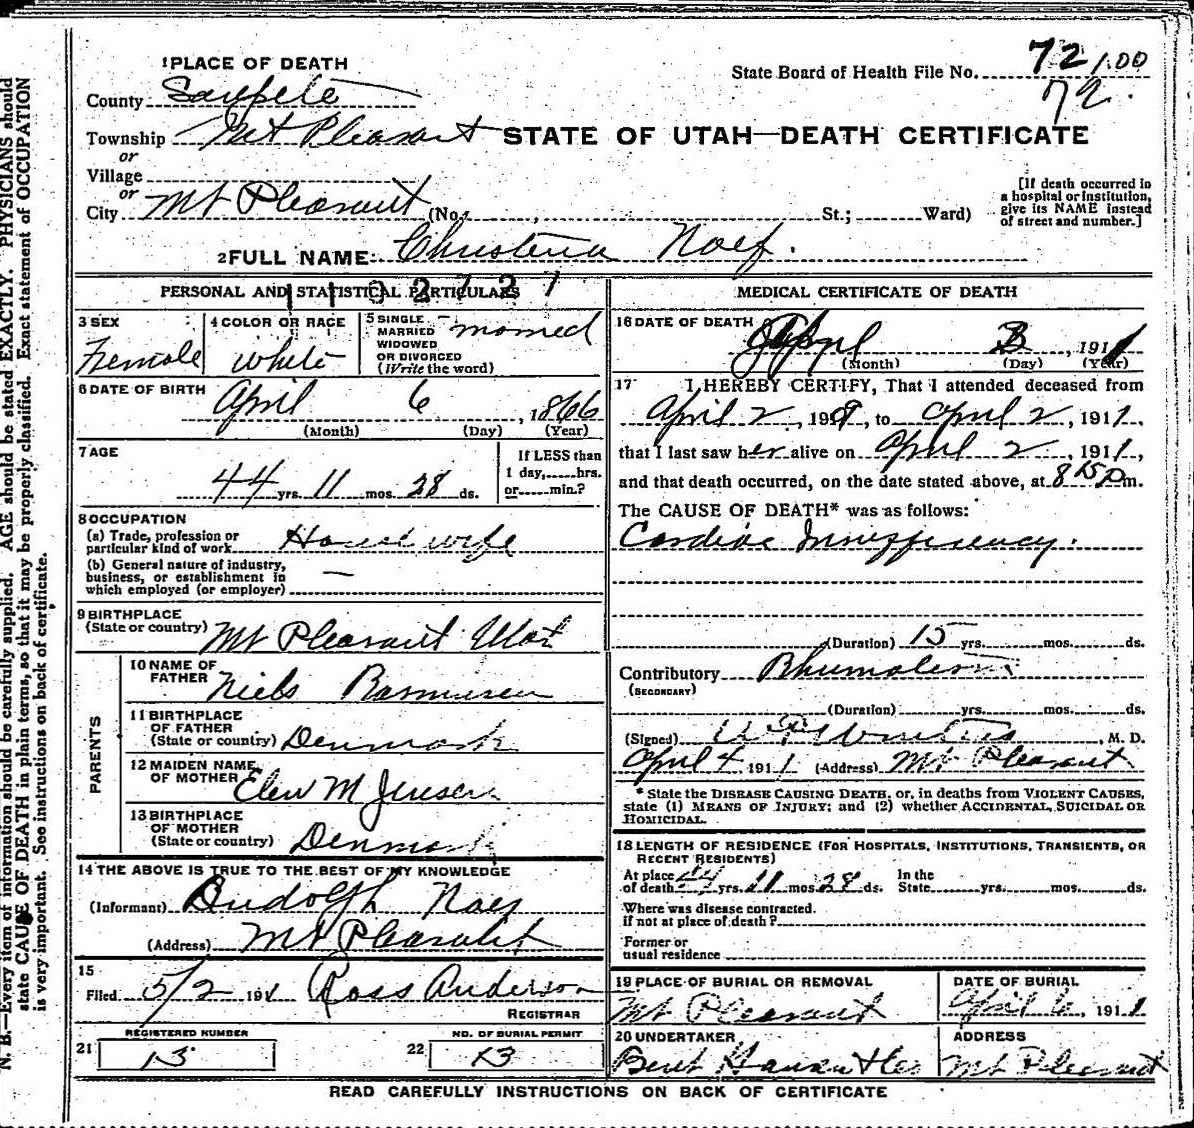 1 PLACE OF DEATH
State Board of Health File No. 72 1.00
72.
County Sanpete
Township Mt Pleasant STATE OF UTAH—DEATH CERTIFICATE
or
Village
or
City Mt Pleasant (No. , St.; Ward)
[If death occurred in
a hospital or institution,
give its NAME instead
of street and number.]
2 FULL NAME Christena Naef.
1102721
PERSONAL AND STATISTICAL PARTICULARS
3 SEX Female
4 COLOR OR RACE white
5 SINGLE
MARRIED
WIDOWED
OR DIVORCED
(Write the word) married
6 DATE OF BIRTH April 6, 1866
(Month) (Day) (Year)
7 AGE 44 yrs. 11 mos. 28 ds.
If LESS than
1 day, hrs.
or min.?
8 OCCUPATION
(a) Trade, profession or
particular kind of work House wife
(b) General nature of industry,
business, or establishment in
which employed (or employer) —
9 BIRTHPLACE
(State or country) Mt Pleasant Utah
PARENTS
10 NAME OF
FATHER Niels Rasmussen
11 BIRTHPLACE
OF FATHER
(State or country) Denmark
12 MAIDEN NAME
OF MOTHER Elen M Jensen
13 BIRTHPLACE
OF MOTHER
(State or country) Denmark
14 THE ABOVE IS TRUE TO THE BEST OF MY KNOWLEDGE
(Informant) Rudolph Naef
(Address) Mt Pleasant
15
Filed 5/2 1911 Ross Anderson
REGISTRAR
REGISTERED NUMBER
21 13
NO. OF BURIAL PERMIT
22 13
MEDICAL CERTIFICATE OF DEATH
16 DATE OF DEATH April 3, 1911
(Month) (Day) (Year)
17 I HEREBY CERTIFY, That I attended deceased from
April 2, 1909, to April 2, 1911,
that I last saw her alive on April 2, 1911,
and that death occurred, on the date stated above, at 8 15 Pm.
The CAUSE OF DEATH* was as follows:
Cardiac
(Duration) 15 yrs. mos. ds.
Contributory Rhumatism
(SECONDARY)
(Duration) yrs. mos. ds.
(Signed) , M. D.
April 4 1911 (Address) Mt Pleasant
* State the DISEASE CAUSING DEATH, or, in deaths from VIOLENT CAUSES,
state (1) MEANS OF INJURY; and (2) whether ACCIDENTAL, SUICIDAL OR
HOMICIDAL.
18 LENGTH OF RESIDENCE (FOR HOSPITALS, INSTITUTIONS, TRANSIENTS, OR
RECENT RESIDENTS)
At place
of death 44 yrs. 11 mos. 28 ds. In the
State yrs. mos. ds.
Where was disease contracted.
if not at place of death?
Former or
usual residence
19 PLACE OF BURIAL OR REMOVAL
Mt Pleasant
DATE OF BURIAL
April 6, 1911
20 UNDERTAKER
Bent Hansen
ADDRESS
Mt Pleasant
READ CAREFULLY INSTRUCTIONS ON BACK OF CERTIFICATE
N. B.—Every item of information should be carefully supplied. AGE should be stated EXACTLY. PHYSICIANS should
state CAUSE OF DEATH in plain terms, so that it may be properly classified. Exact statement of OCCUPATION
is very important. See instructions on back of certificate.